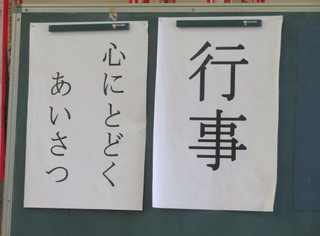 行事
心にとどく
あいさつ